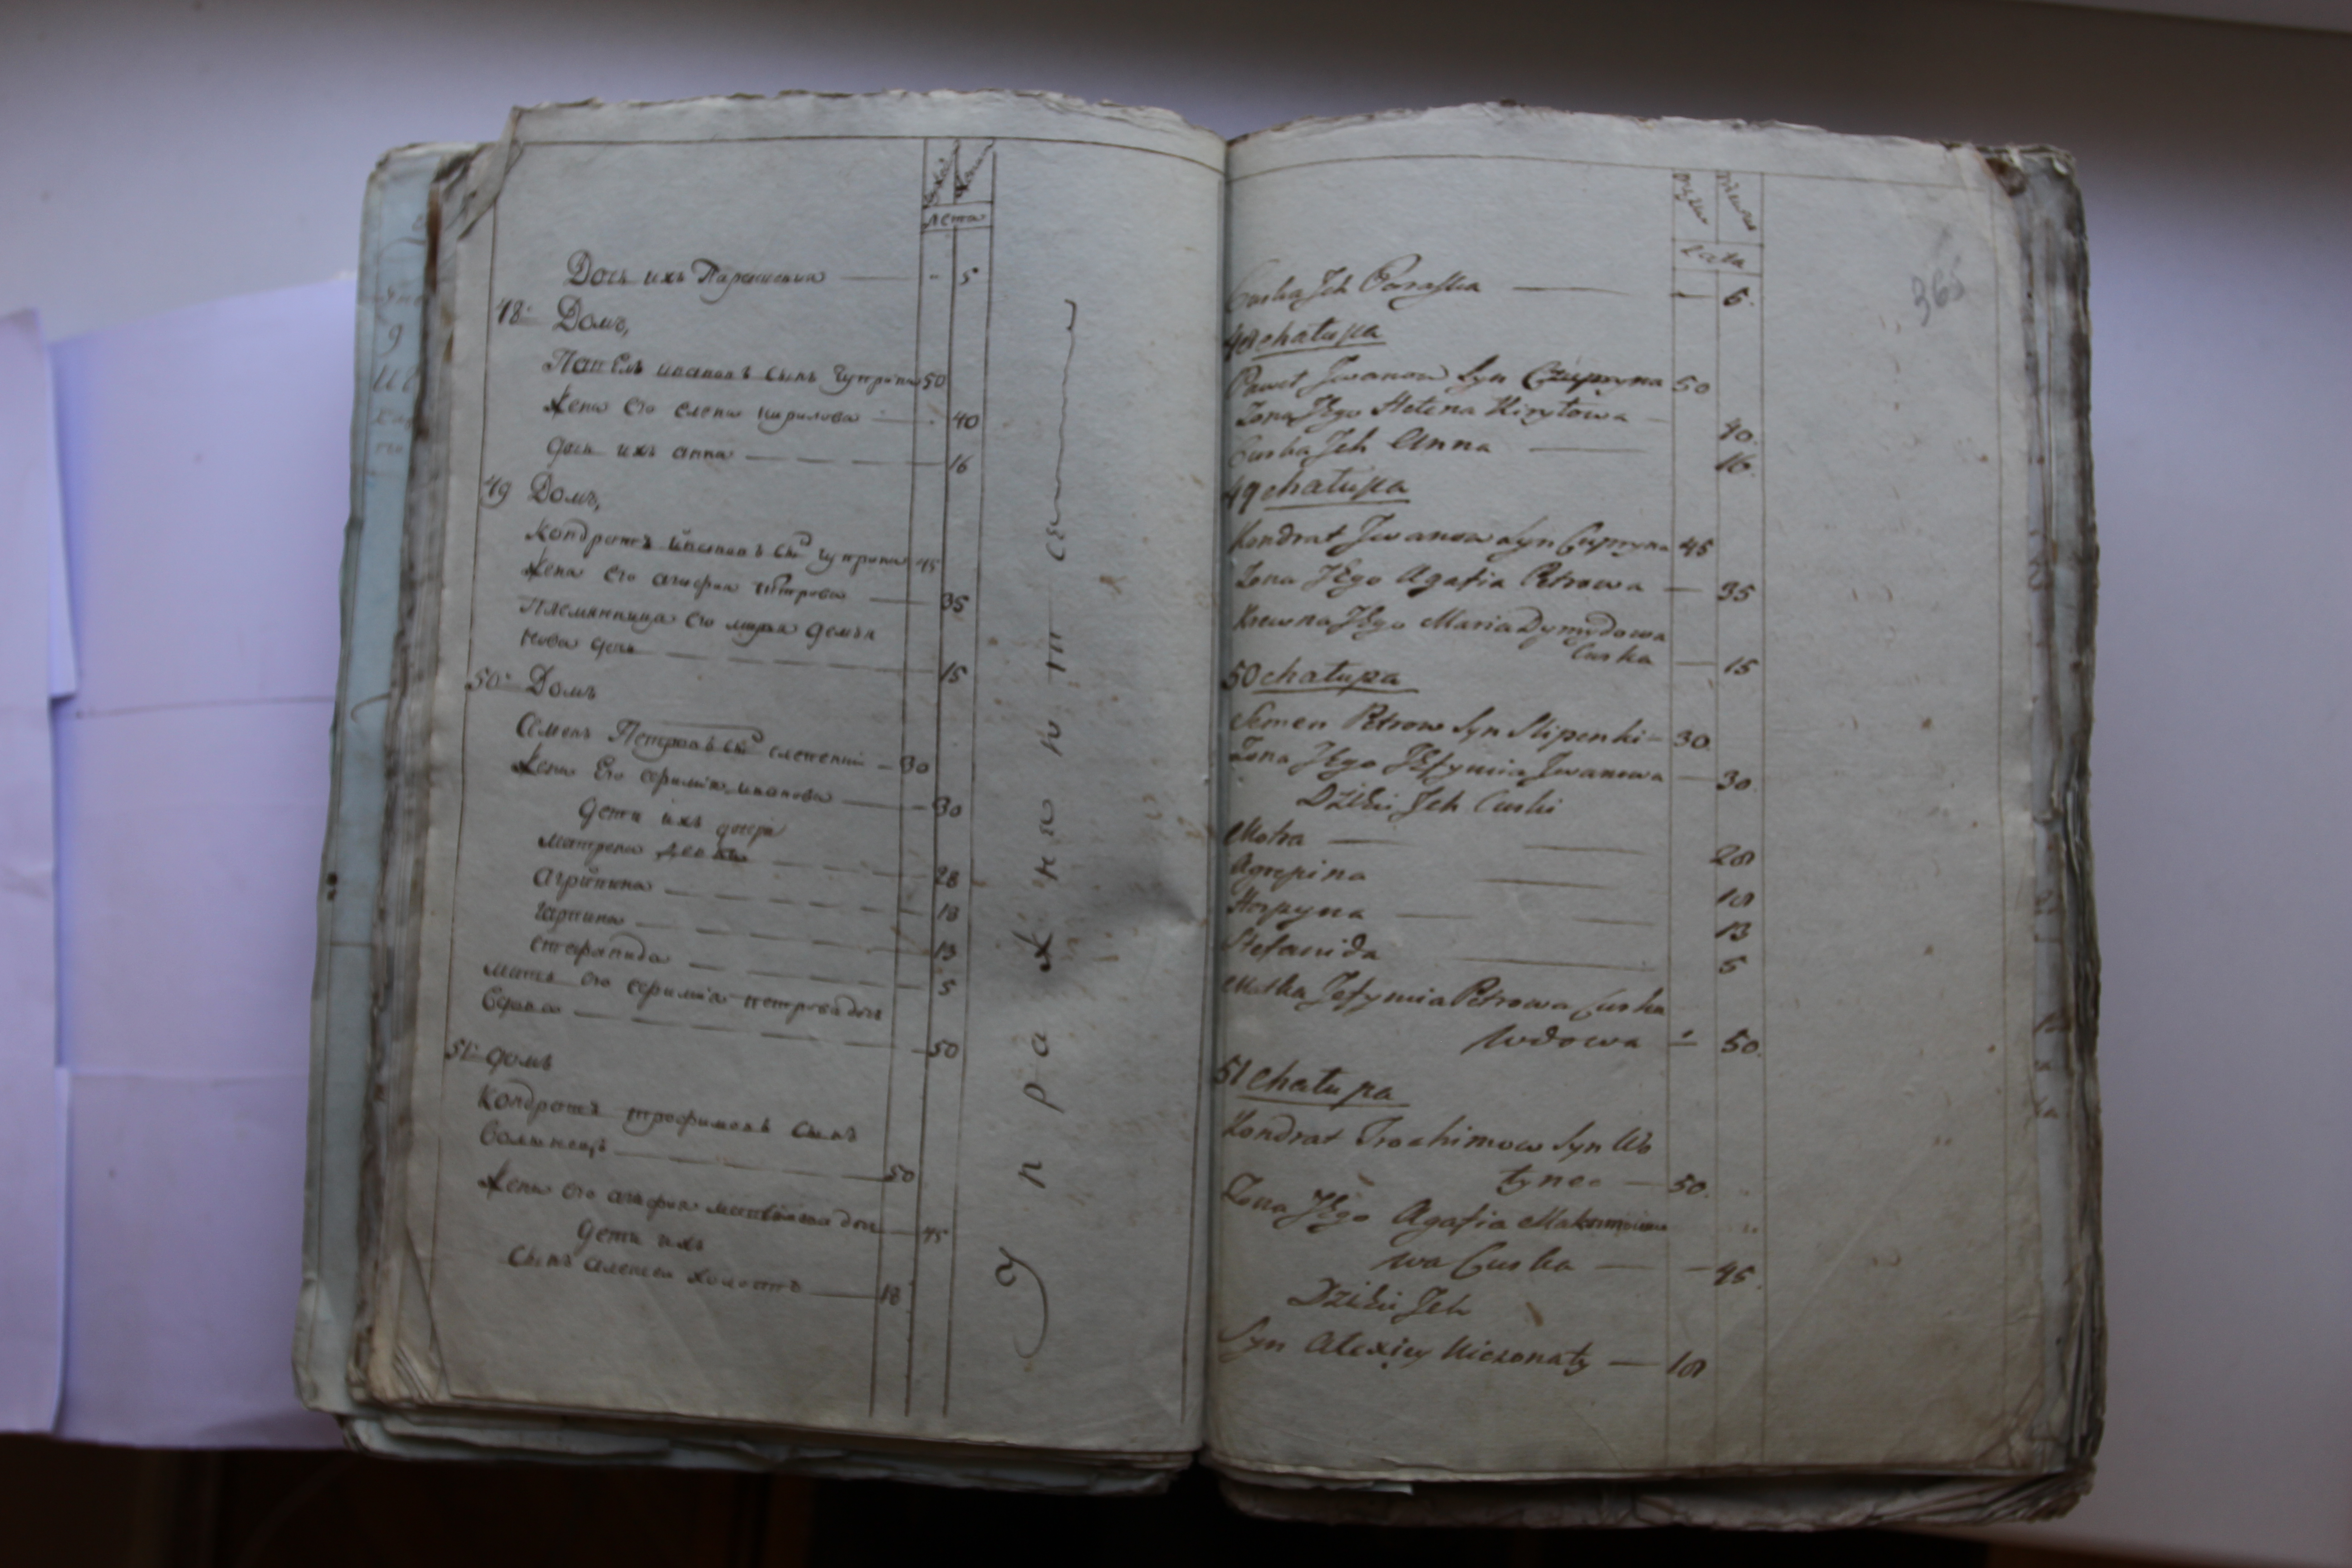 лета
Дочь ихъ Параскевия — 5
48 Домъ,
Павелъ Ивановъ сынъ Чуприна 50
Жена его Елена Кирилова — 40
Дочь ихъ Анна — 16
49 Домъ,
Кондратъ Ивановъ снъ Чуприна 45
Жена его Агафия Петрова — 35
Племянница его Марья Демья
нова дочь — 15
50 Домъ
Семенъ Петровъ снъ — 30
Жена Его Ефимія Иванова — 30
Дети ихъ дочери
Матрена — 28
Агрипина — 18
Гарпина — 13
Стефанида — 5
Мать его Ефимія Петрова дочь
Вдова — 50
51 Домъ
Кондратъ Трофимовъ сынъ
Волынецъ — 50
Жена его Агафия дочь — 45
Дети ихъ
Сынъ Алексей холостъ — 18
Lata
Curka Jch Paraska — 5.
48 chałupa
Paweł Jwanow Syn Czupryna 50
Zona JEgo Helena Kiryłowa — 40.
Curka Jch Anna — 16.
49 chałupa
Kondrat Jwanow Syn Cupryna 45
Zona JEgo Agafia Petrowa — 35
Krewna JEgo Maria Dymydowa
Curka — 15
50 chałupa
Semen Petrow Syn Slipenki — 30.
Zona JEgo JEfymia Jwanowa — 30.
Dzieci Jch Curki
Motra — 28
Agrepina — 18
Horpyna — 13
Stefanida — 5
Matka Jefymia Petrowa Curka
Wdowa — 50.
51 Chałupa
Kondrat Trochimow Syn Wo
łynec — 50.
Zona JEgo Agafia
wa Curka — 45.
Dzieci Jch
Syn Alexiey Niezonaty — 18
365